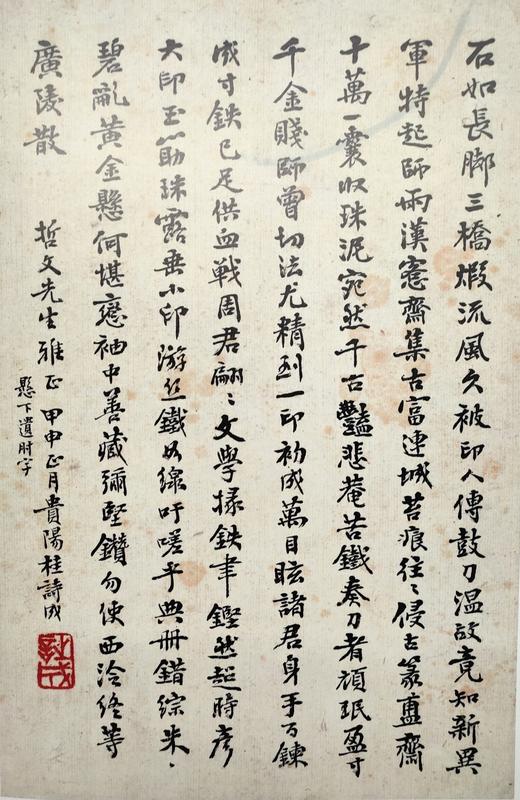 石如長腳三橋煆流風久被印人傳鼓刀溫故竟知新異
軍特起師兩漢愙齋集古富連城苔痕往〻侵古篆盙齋
十萬一囊收珠泥宛然千古豔悲菴苦鐵奏刀者頑珉盈寸
千金賤師曾切法尤精到一印初成萬目眩諸君身手百鍊
成寸鉄已足供血戦周君翩〻文學掾鉄聿鏗然超時彥
大印玉筯珠露垂小印游絲鐵線吁嗟乎典冊錯綜朱〻
碧亂黃金懸何堪袖中善藏彌堅鑽勿使西泠終等
廣陵散
哲文先生雅正 甲申正月貴陽桂詩成
懸下遺肘字
詩成